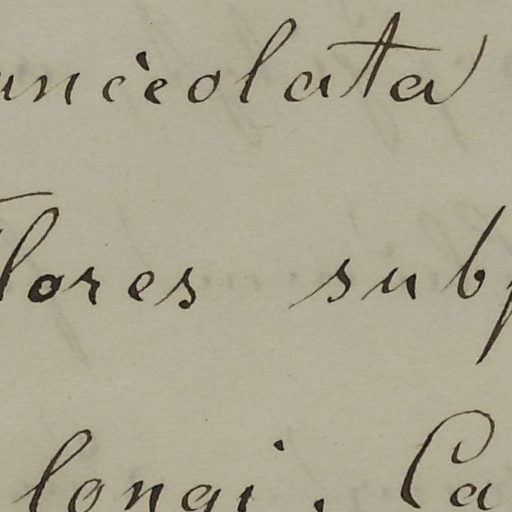 anceolata
Flores subp
longi. Ca